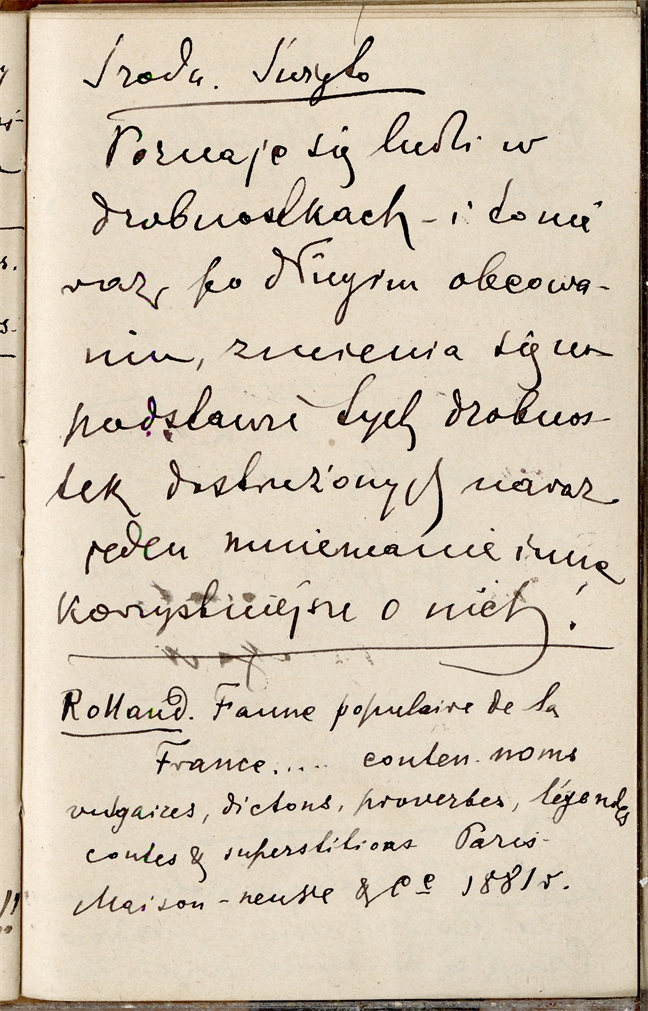 Środa. Święto
Poznaje się ludzi w
drobnostkach - i to nie
raz, po długim obcowa-
niu, zmienia się na
podstawie tych drobnos-
tek dostrzeżonych naraz
jeden mniemanie inne
korzystniejsze o nich!
Rolland. Faune populaire de la
France.... conten. noms
vulgaires, dictons, proverbes, légendes
contes & superstitions Paris-
Maison-neuve & Ce 1881 r.